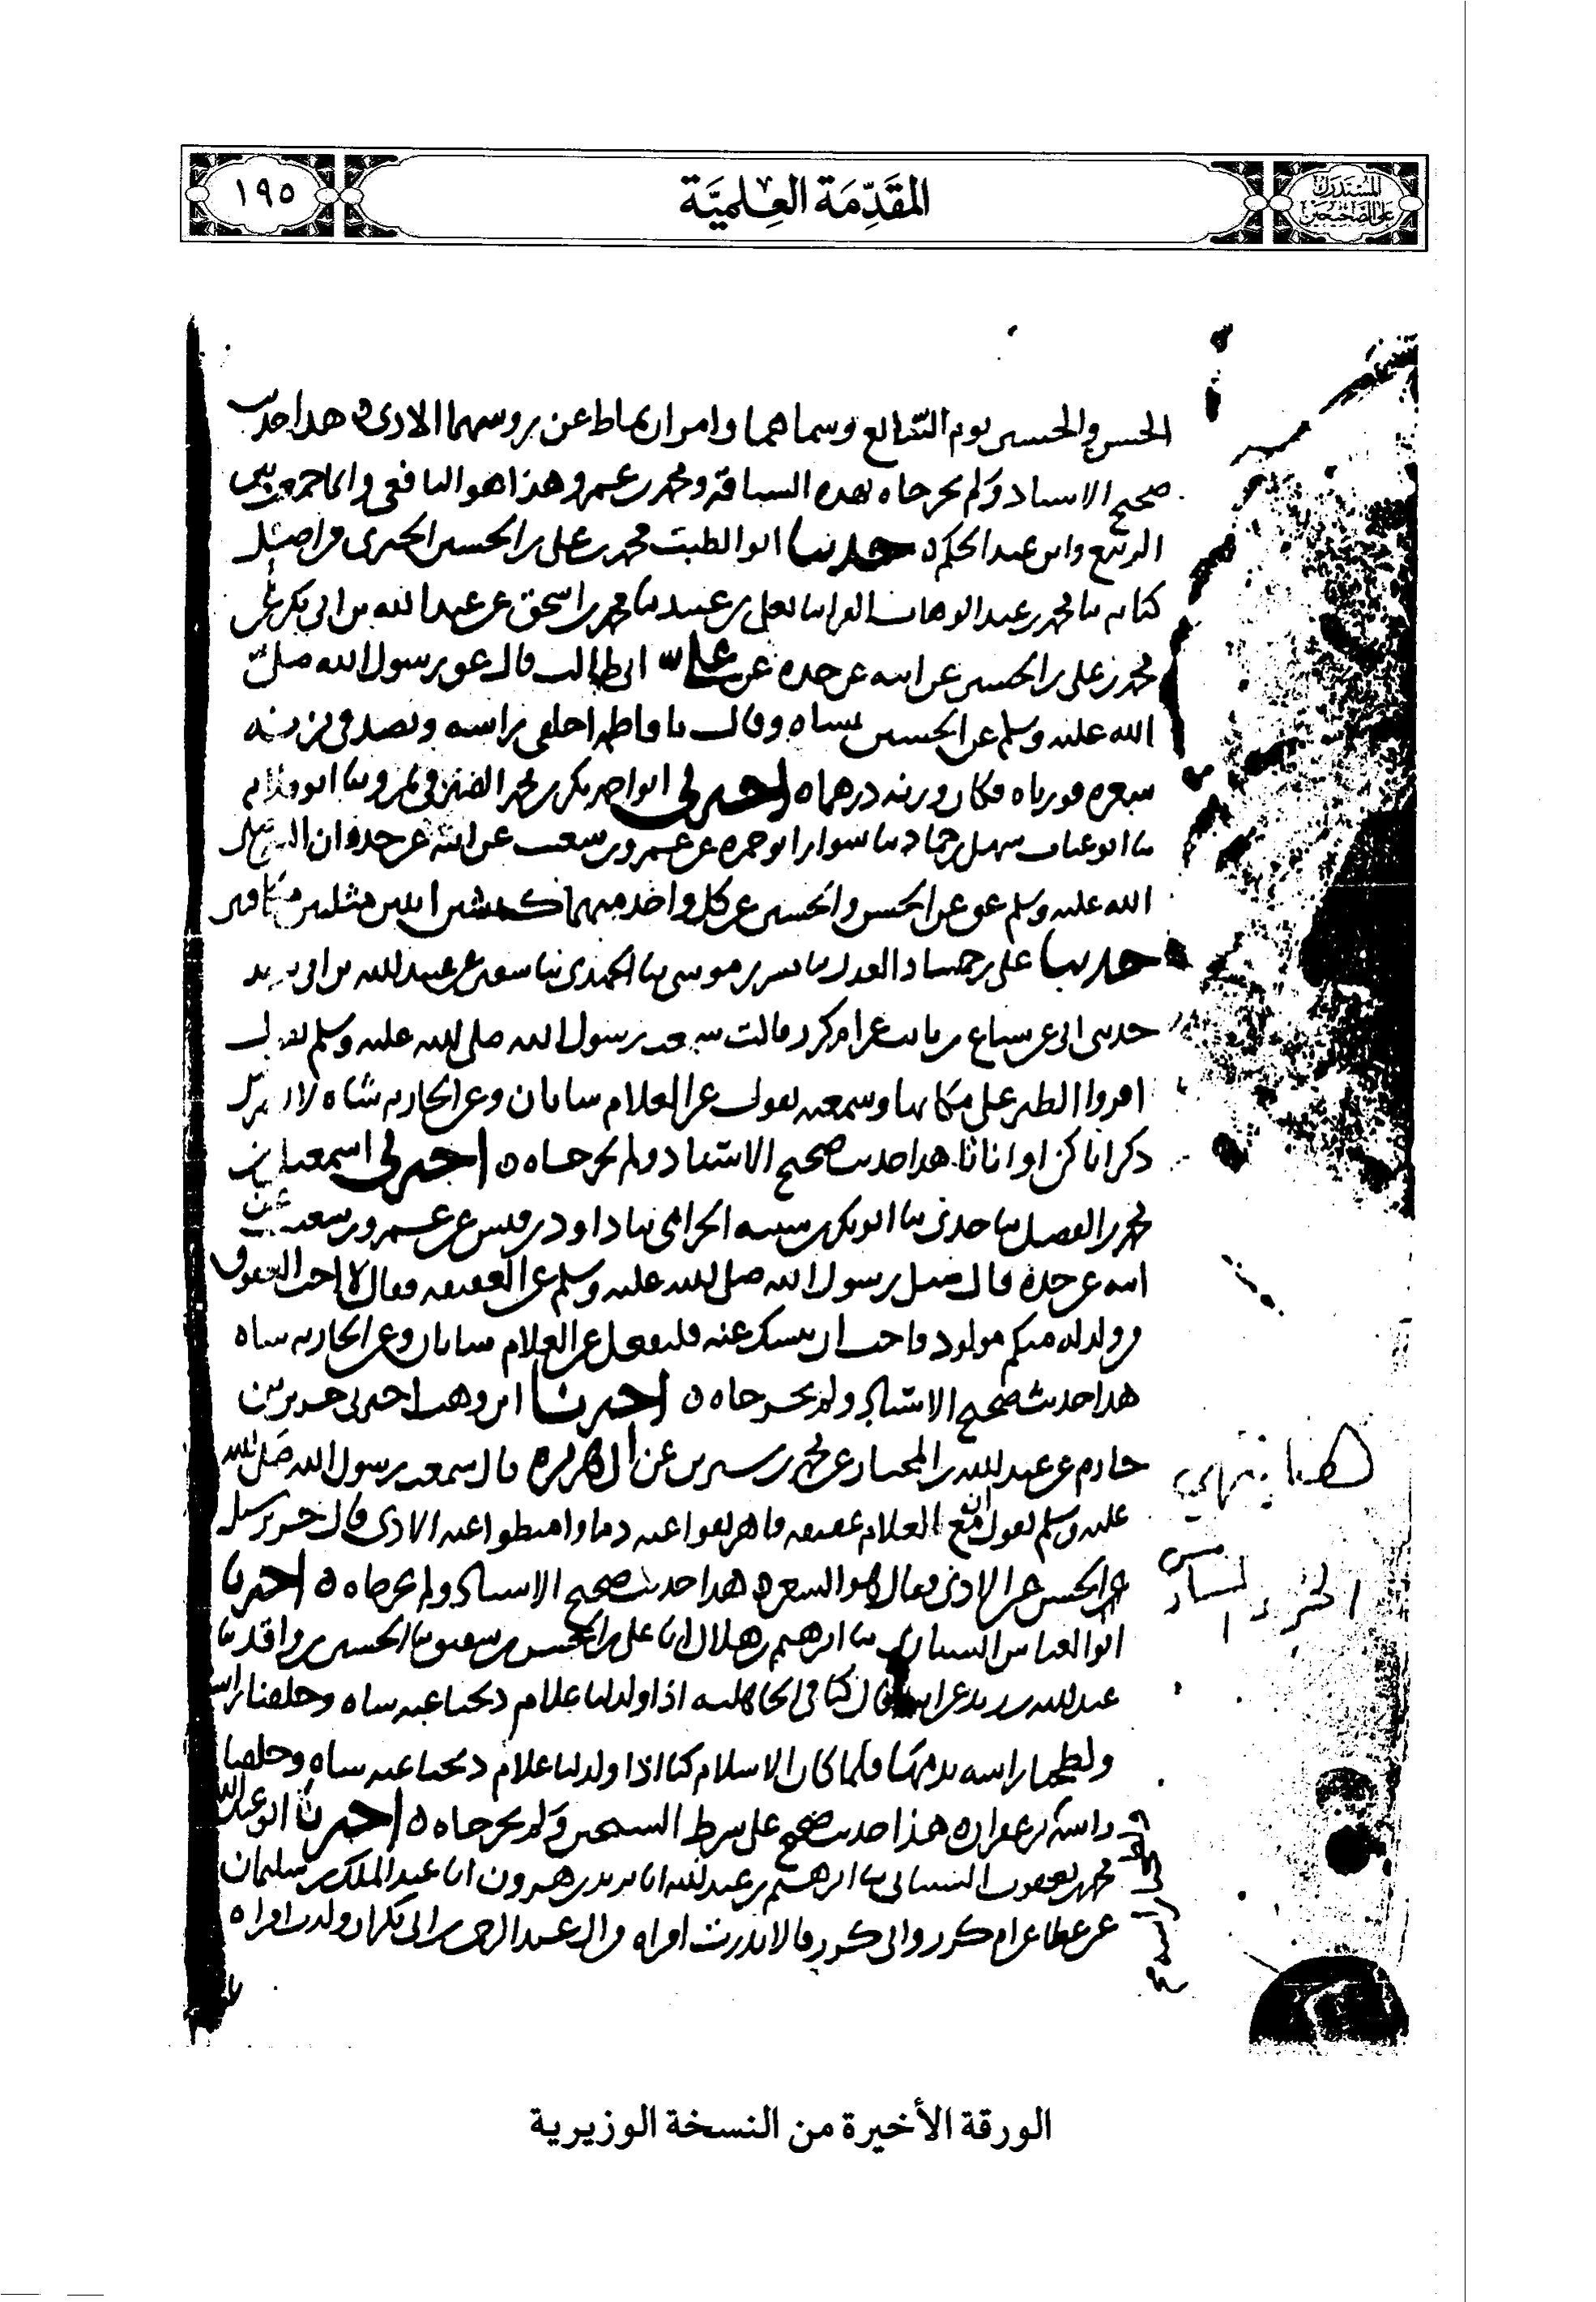 المستدرك
على الصحيحين
المقدِّمَة العِلميَّة
١٩٥
الحسن والحسين يوم السابع وسماهما وامر ان يماط عن روسهما الاذى ه هذا حديث
صحيح الاسناد ولم يخرجاه بهذه السياقة ومحمد بن عمرو هذا هو اليافعي وانما
الربيع وابن عبد الحكم ه حدثنا ابو الطيب محمد بن علي بن الحسين الحيري من اصل
كتابه ثنا محمد بن عبد الوهاب الفرا ثنا يعلى بن عبيد ثنا محمد بن اسحق عن عبد الله بن ابي بكر عن
محمد بن علي بن الحسين عن ابيه عن جده عن علي بن ابي طالب قال عق رسول الله صلى
الله عليه وسلم عن الحسين بشاه وقال يا فاطمه احلقي راسه وتصدقي بزنه
شعره فوزناه فكان وزنه درهما ه اخبرني ابو احمد بكر بن محمد الصيرفي بمرو ثنا ابو قلابه
ثنا ابو عتاب سهل بن حماد ثنا سوار ابو حمزه عن عمرو بن شعيب عن ابيه عن جده ان النبي صلى
الله عليه وسلم عق عن الحسن والحسين عن كل واحد منهما كبشين اثنين مثلين متكافيين
حدثنا علي بن حمشاد العدل ثنا بشر بن موسى ثنا الحميدي ثنا سفين عن عبيد الله بن ابي يزيد
حدثني ابي عن سباع بن ثابت عن ام كرز قالت سمعت رسول الله صلى الله عليه وسلم يقول
اقروا الطير على مكاناتها وسمعته يقول عن الغلام شاتان وعن الجاريه شاه لا يضركم
ذكرانا كن او اناثا هذا حديث صحيح الاسناد ولم يخرجاه ه اخبرني اسمعيل بن
محمد بن الفضل ثنا جدي ثنا ابو بكر بن شيبه الحزامي ثنا داود بن قيس عن عمرو بن شعيب عن
ابيه عن جده قال سئل رسول الله صلى الله عليه وسلم عن العقيقه فقال لا احب العقوق
من ولد له منكم مولود فاحب ان ينسك عنه فليفعل عن الغلام شاتان وعن الجاريه شاه
هذا حديث صحيح الاسناد ولم يخرجاه ه اخبرنا ابن وهب اخبرني جرير بن
حازم عن عبد الله بن المختار عن محمد بن سيرين عن ابي هريره قال سمعت رسول الله صلى الله
عليه وسلم يقول ان مع الغلام عقيقه فاهريقوا عنه دما واميطوا عنه الاذى قال جرير سئل
الحسن عن الاذى فقال هو الشعر ه هذا حديث صحيح الاسناد ولم يخرجاه ه اخبرنا
ابو العباس السياري ثنا ابرهيم بن هلال انا علي بن الحسن بن شقيق ثنا الحسين بن واقد ثنا
عبد الله بن بريده عن ابيه قال كنا في الجاهليه اذا ولد لنا غلام ذبحنا عنه شاه وحلقنا راسه
ولطخنا راسه بدمها فلما كان الاسلام كنا اذا ولد لنا غلام ذبحنا عنه شاه وحلقنا
راسه بزعفران ه هذا حديث صحيح على شرط الشيخين ولم يخرجاه ه اخبرنا ابو عبد الله
محمد بن يعقوب الشيباني ثنا ابرهيم بن عبد الله انا يزيد بن هرون انا عبد الملك بن سليمان
عن عطا عن ام كرز وابي كرز قالا نذرت امراه من ال عبد الرحمن بن ابي بكر ان ولدت امراه
هنا ينتهي
الجزء السادس
الورقة الأخيرة من النسخة الوزيرية